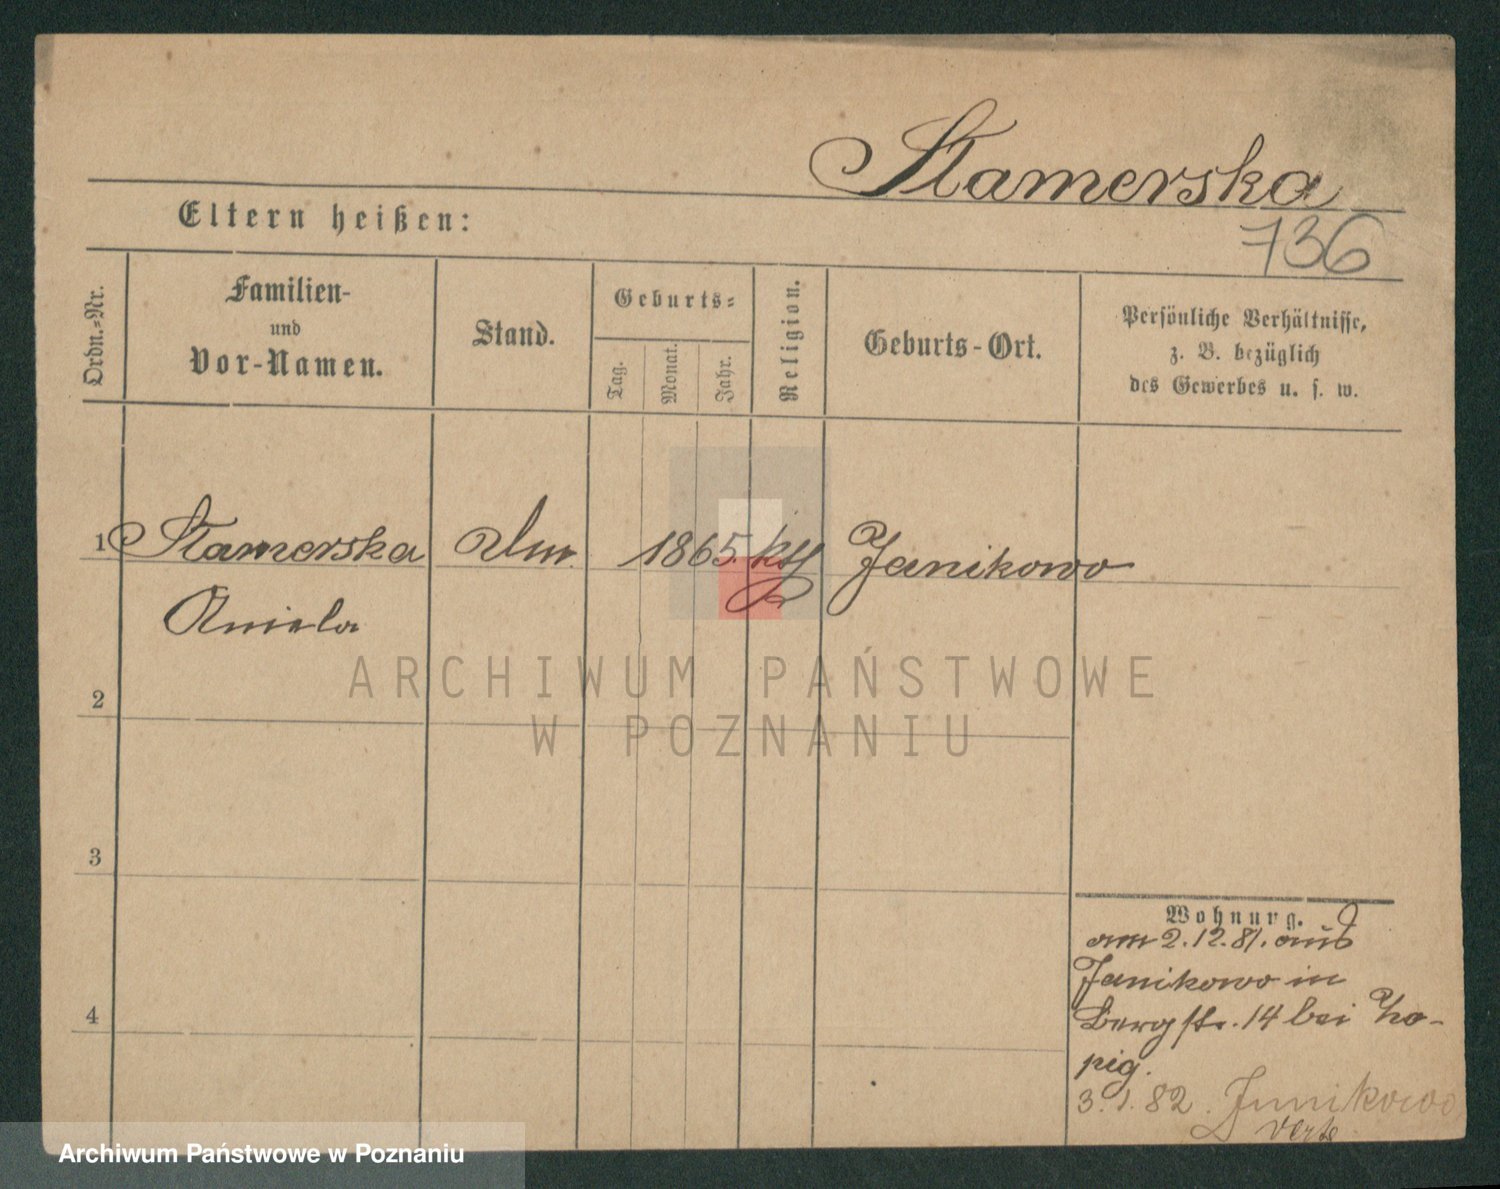 Stamerska
736
Eltern heißen:
Ordn.-Nr.
Familien-
und
Vor-Namen.
Stand.
Geburts-
Tag.
Monat.
Jahr.
Religion.
Geburts-Ort.
Persönliche Verhältnisse,
z. B. bezüglich
des Gewerbes u. s. w.
1 Stamerska 1865. kth Janikowo
Aniela
2
3
4
Wohnung.
am 2.12.81. aus
Janikowo in
Bergstr. 14 bei
3.1.82. Janikowo
verte
ARCHIWUM PAŃSTWOWE
W POZNANIU
Archiwum Państwowe w Poznaniu